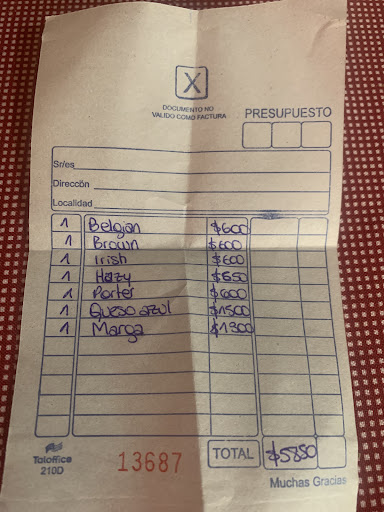 X
DOCUMENTO NO
VALIDO COMO FACTURA
PRESUPUESTO
Sr/es
Dirección
Localidad
1 Belgian $600
1 Brown $600
1 Irish $600
1 Hazy $650
1 Porter $600
1 Queso azul $1500
1 Marga $1300
Taloffice
210D
13687
TOTAL $5850
Muchas Gracias